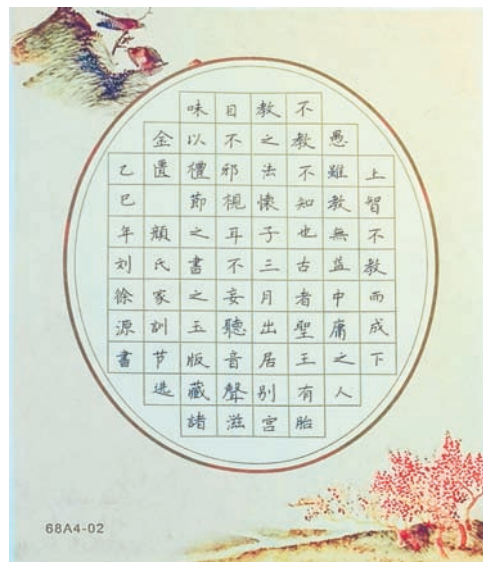 上智不教而成下
愚雖教無益中庸之人
不教不知也古者聖王有胎
教之法懷子三月出居别宮
目不邪視耳不妄聽音聲滋
味以禮節之書之玉版藏諸
金匱 顏氏家訓节选
乙巳年刘徐源書
68A4-02